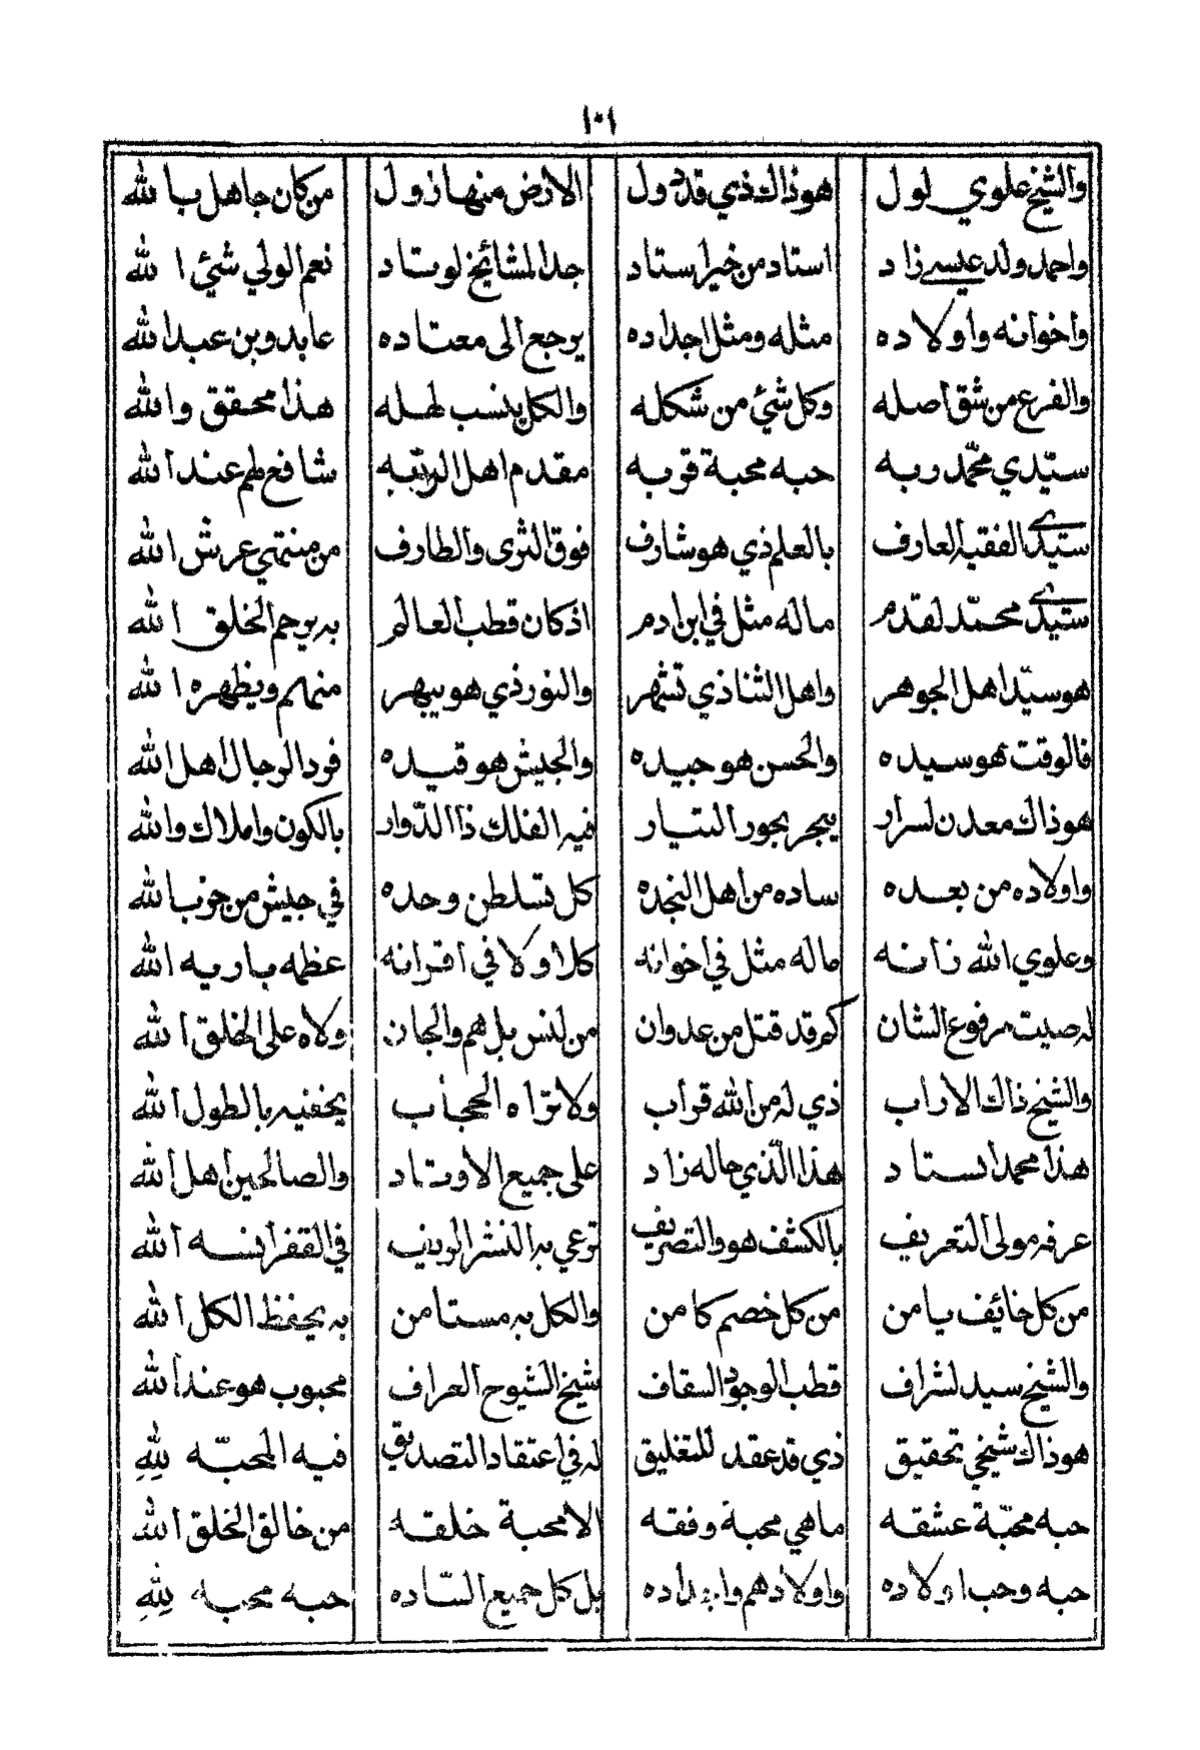 ١٠١
والشيخ علوي لول هو ذاك ذي قد دول الارض منها زول من كان جاهل بالله
واحمد ولد عيسى زاد استاد من خير استاد جد المشائخ لوتاد نعم الولي شئي الله
واخوانه واولاده مثله ومثل اجداده يرجع الى معتاده عابد وبن عبد الله
والفرع من شق اصله وكل شئ من شكله والكل ينسب لهله هذا محقق والله
سيّدي محمّد ربه حبه محبة قربه مقدم اهل الرتبه شافع لهم عند الله
سيّدي الفقيه العارف بالعلم ذي هو شارف فوق الثرى والطارف من منتهي عرش الله
سيّدي محمّد لقدم ماله مثل في ابن ادم اذ كان قطب العالم به يرحم الخلق الله
هو سيّد اهل الجوهر واهل الثنا ذي تشهر والنور ذي هو يبهر منهم ويظهره الله
فالوقت هو سيده والحسن هو جيده والجيش هو قيده فرد الرجال اهل الله
هو ذاك معدن لسرار يبحر بحور التيار فيه الفلك ذا الدّوار بالكون واملاك والله
واولاده من بعده ساده من اهل النجده كل تسلطن وحده في جيش من حزب الله
وعلوي الله زانه ماله مثل في اخوانه كلا ولا في اقرانه عظمه باريه الله
له صيت مرفوع الشان كم قد قتل من عدوان من لنس بل هم والجان ولاه على الخلق الله
والشيخ ذاك الاراب ذي له من الله قراب ولا تراه الحجاب يخفيه بالطول الله
هذا محمد استاد هذا الّذي حاله زاد على جميع الاوتاد والصالحين اهل الله
عرفه مولى التعريف بالكشف هو والتصريف ترعي به النشر الوريف في القفر انسه الله
من كل خائف يامن من كل خصم كامن والكل به مستامن به يحفظ الكل الله
والشيخ سيد لشراف قطب الوجود السقاف شيخ الشيوخ العراف محبوب هو عند الله
هو ذاك شيخي تحقيق ذي قد عقد للتغليق له في اعتقاد التصديق فيه المحبّه لله
حبه محبّة عشقه ماهي محبة وفقه الا محبة خلقه من خالق الخلق الله
حبه وحب اولاده واولادهم واجداده بل كل جميع السّاده حبه محبه لله